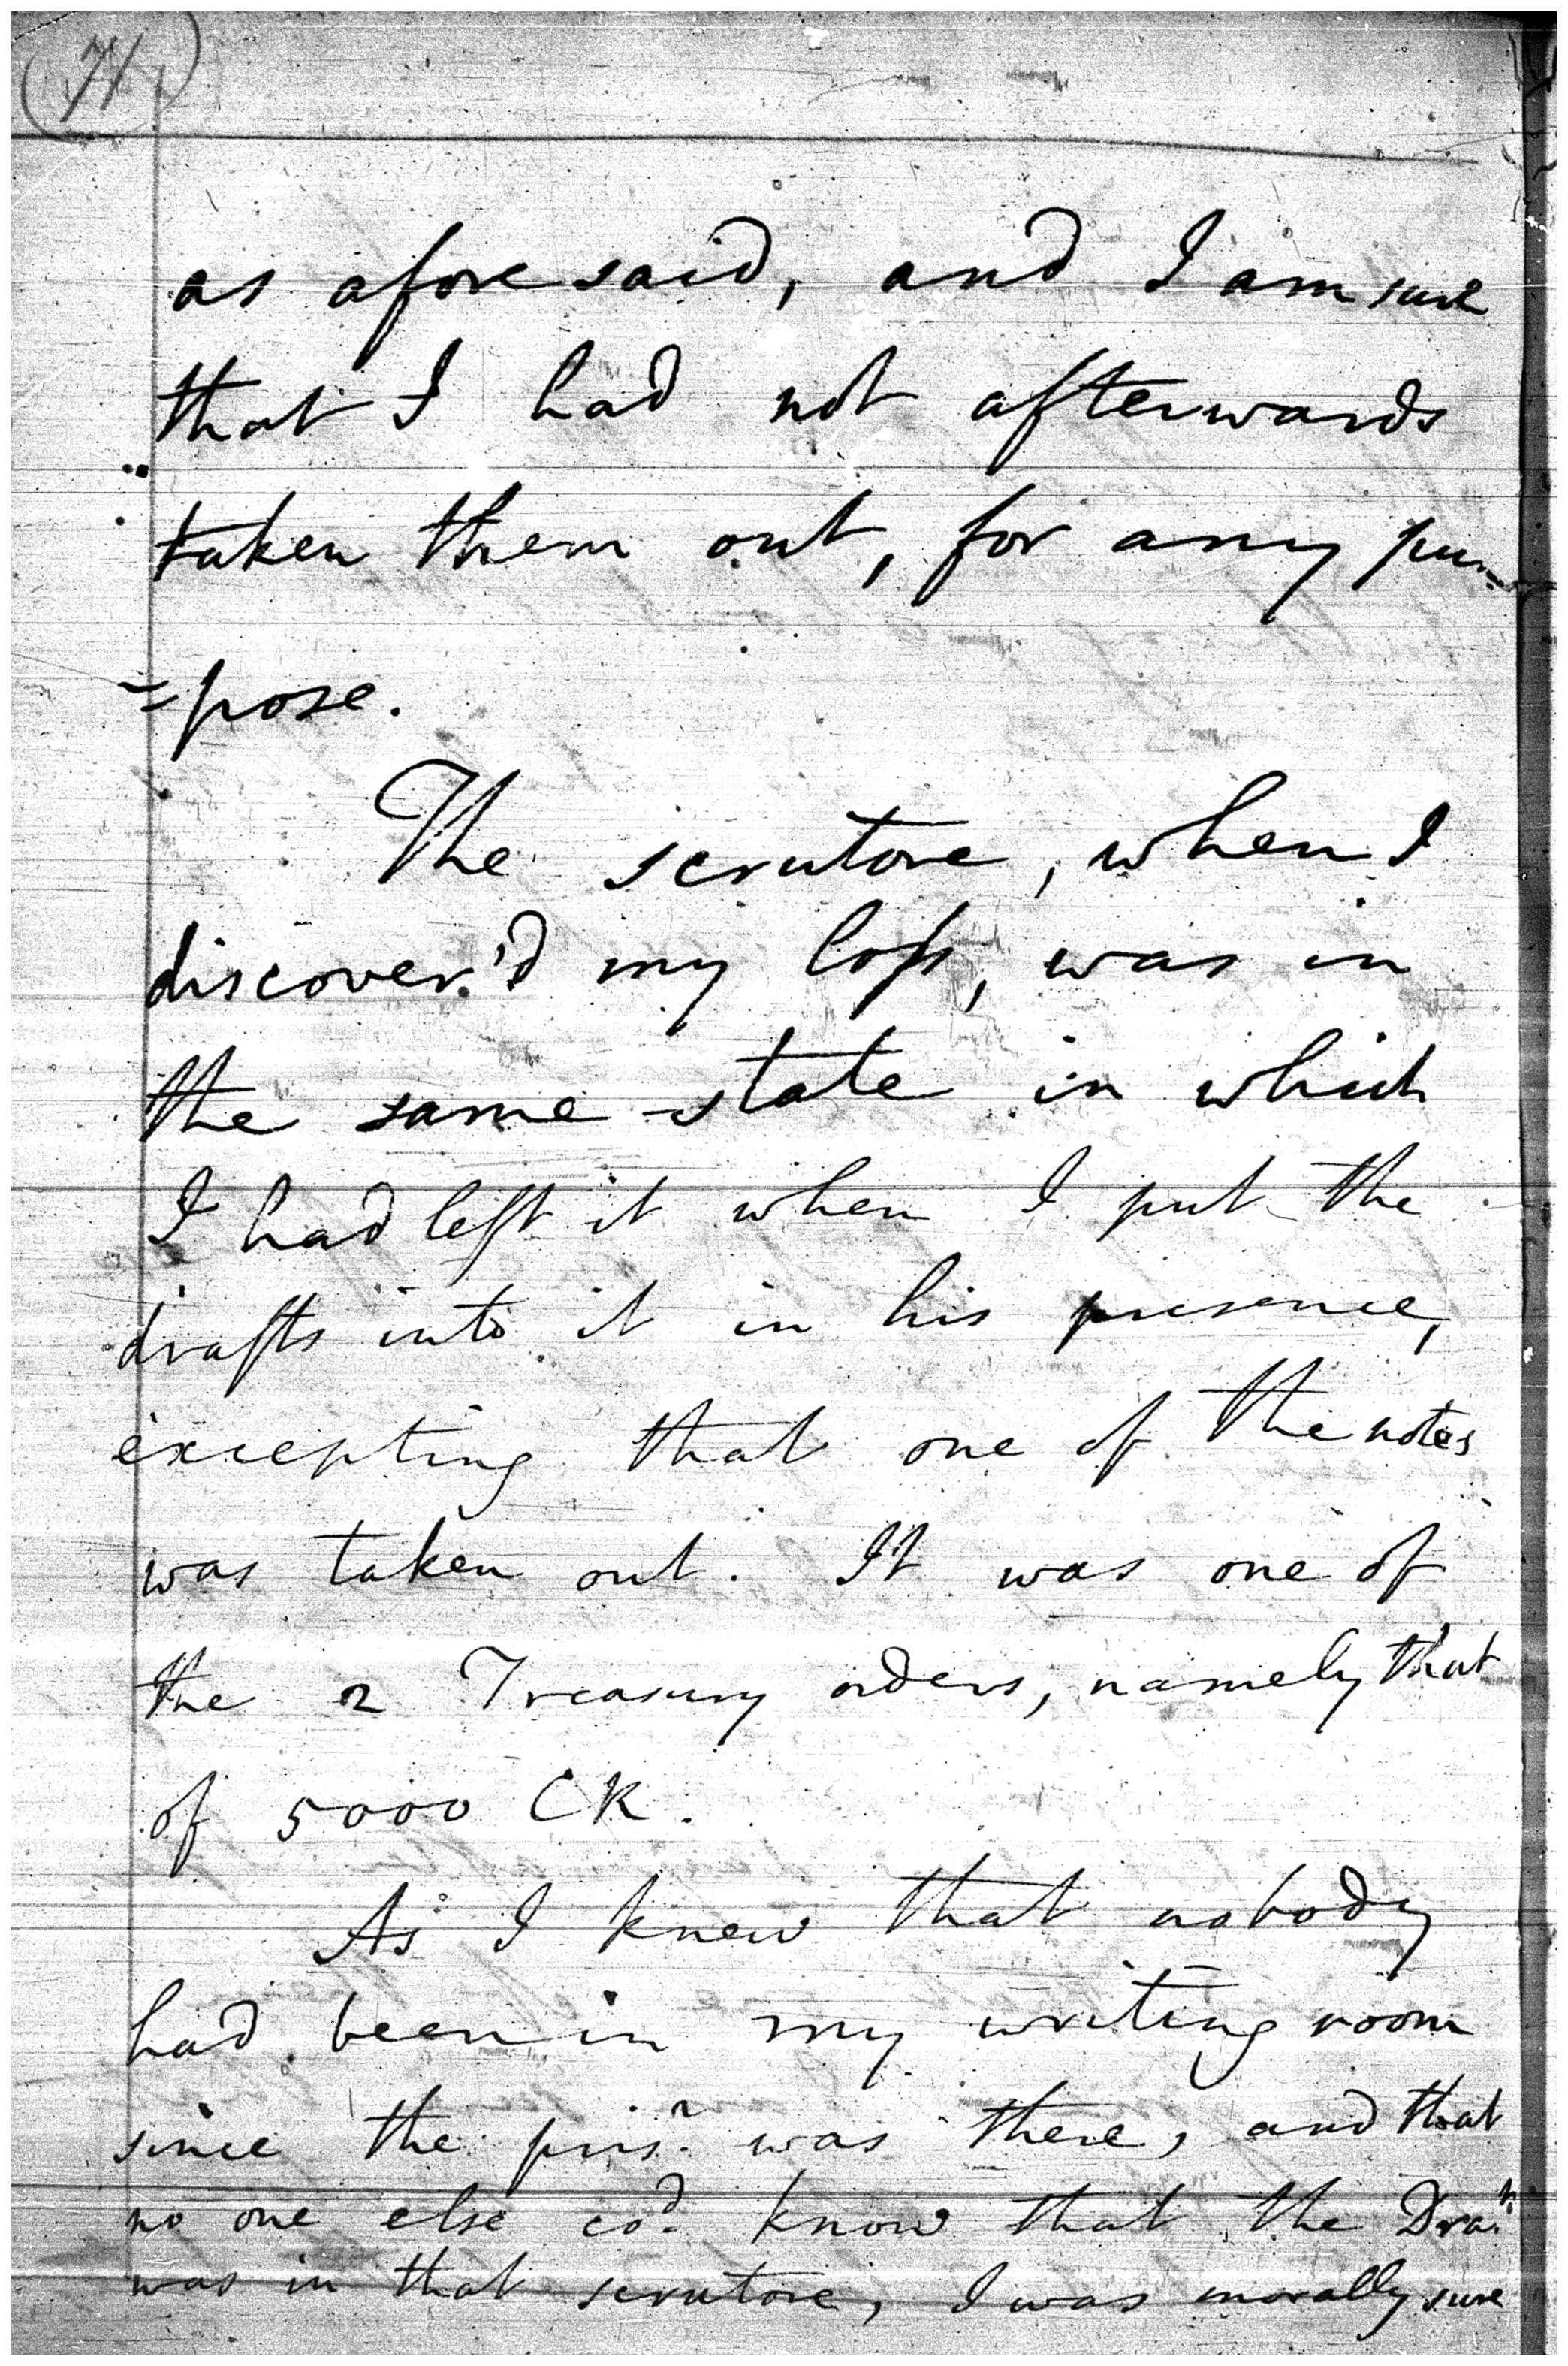 as aforesaid, and I am sure
that I had not afterwards
taken them out, for any pur=
=pose.
The scrutore, when I
discover'd my loss, was in
the same state in which
I had left it when I put the
drafts into it in his presence,
excepting that one of the notes
was taken out. It was one of
the 2 Treasury orders, namely that
of 5000 CR.
As I knew that nobody
had been in my writing room
since the prisr. was there, and that
no one else cod. know that the Dra.ft
was in that scrutore, I was morally sure